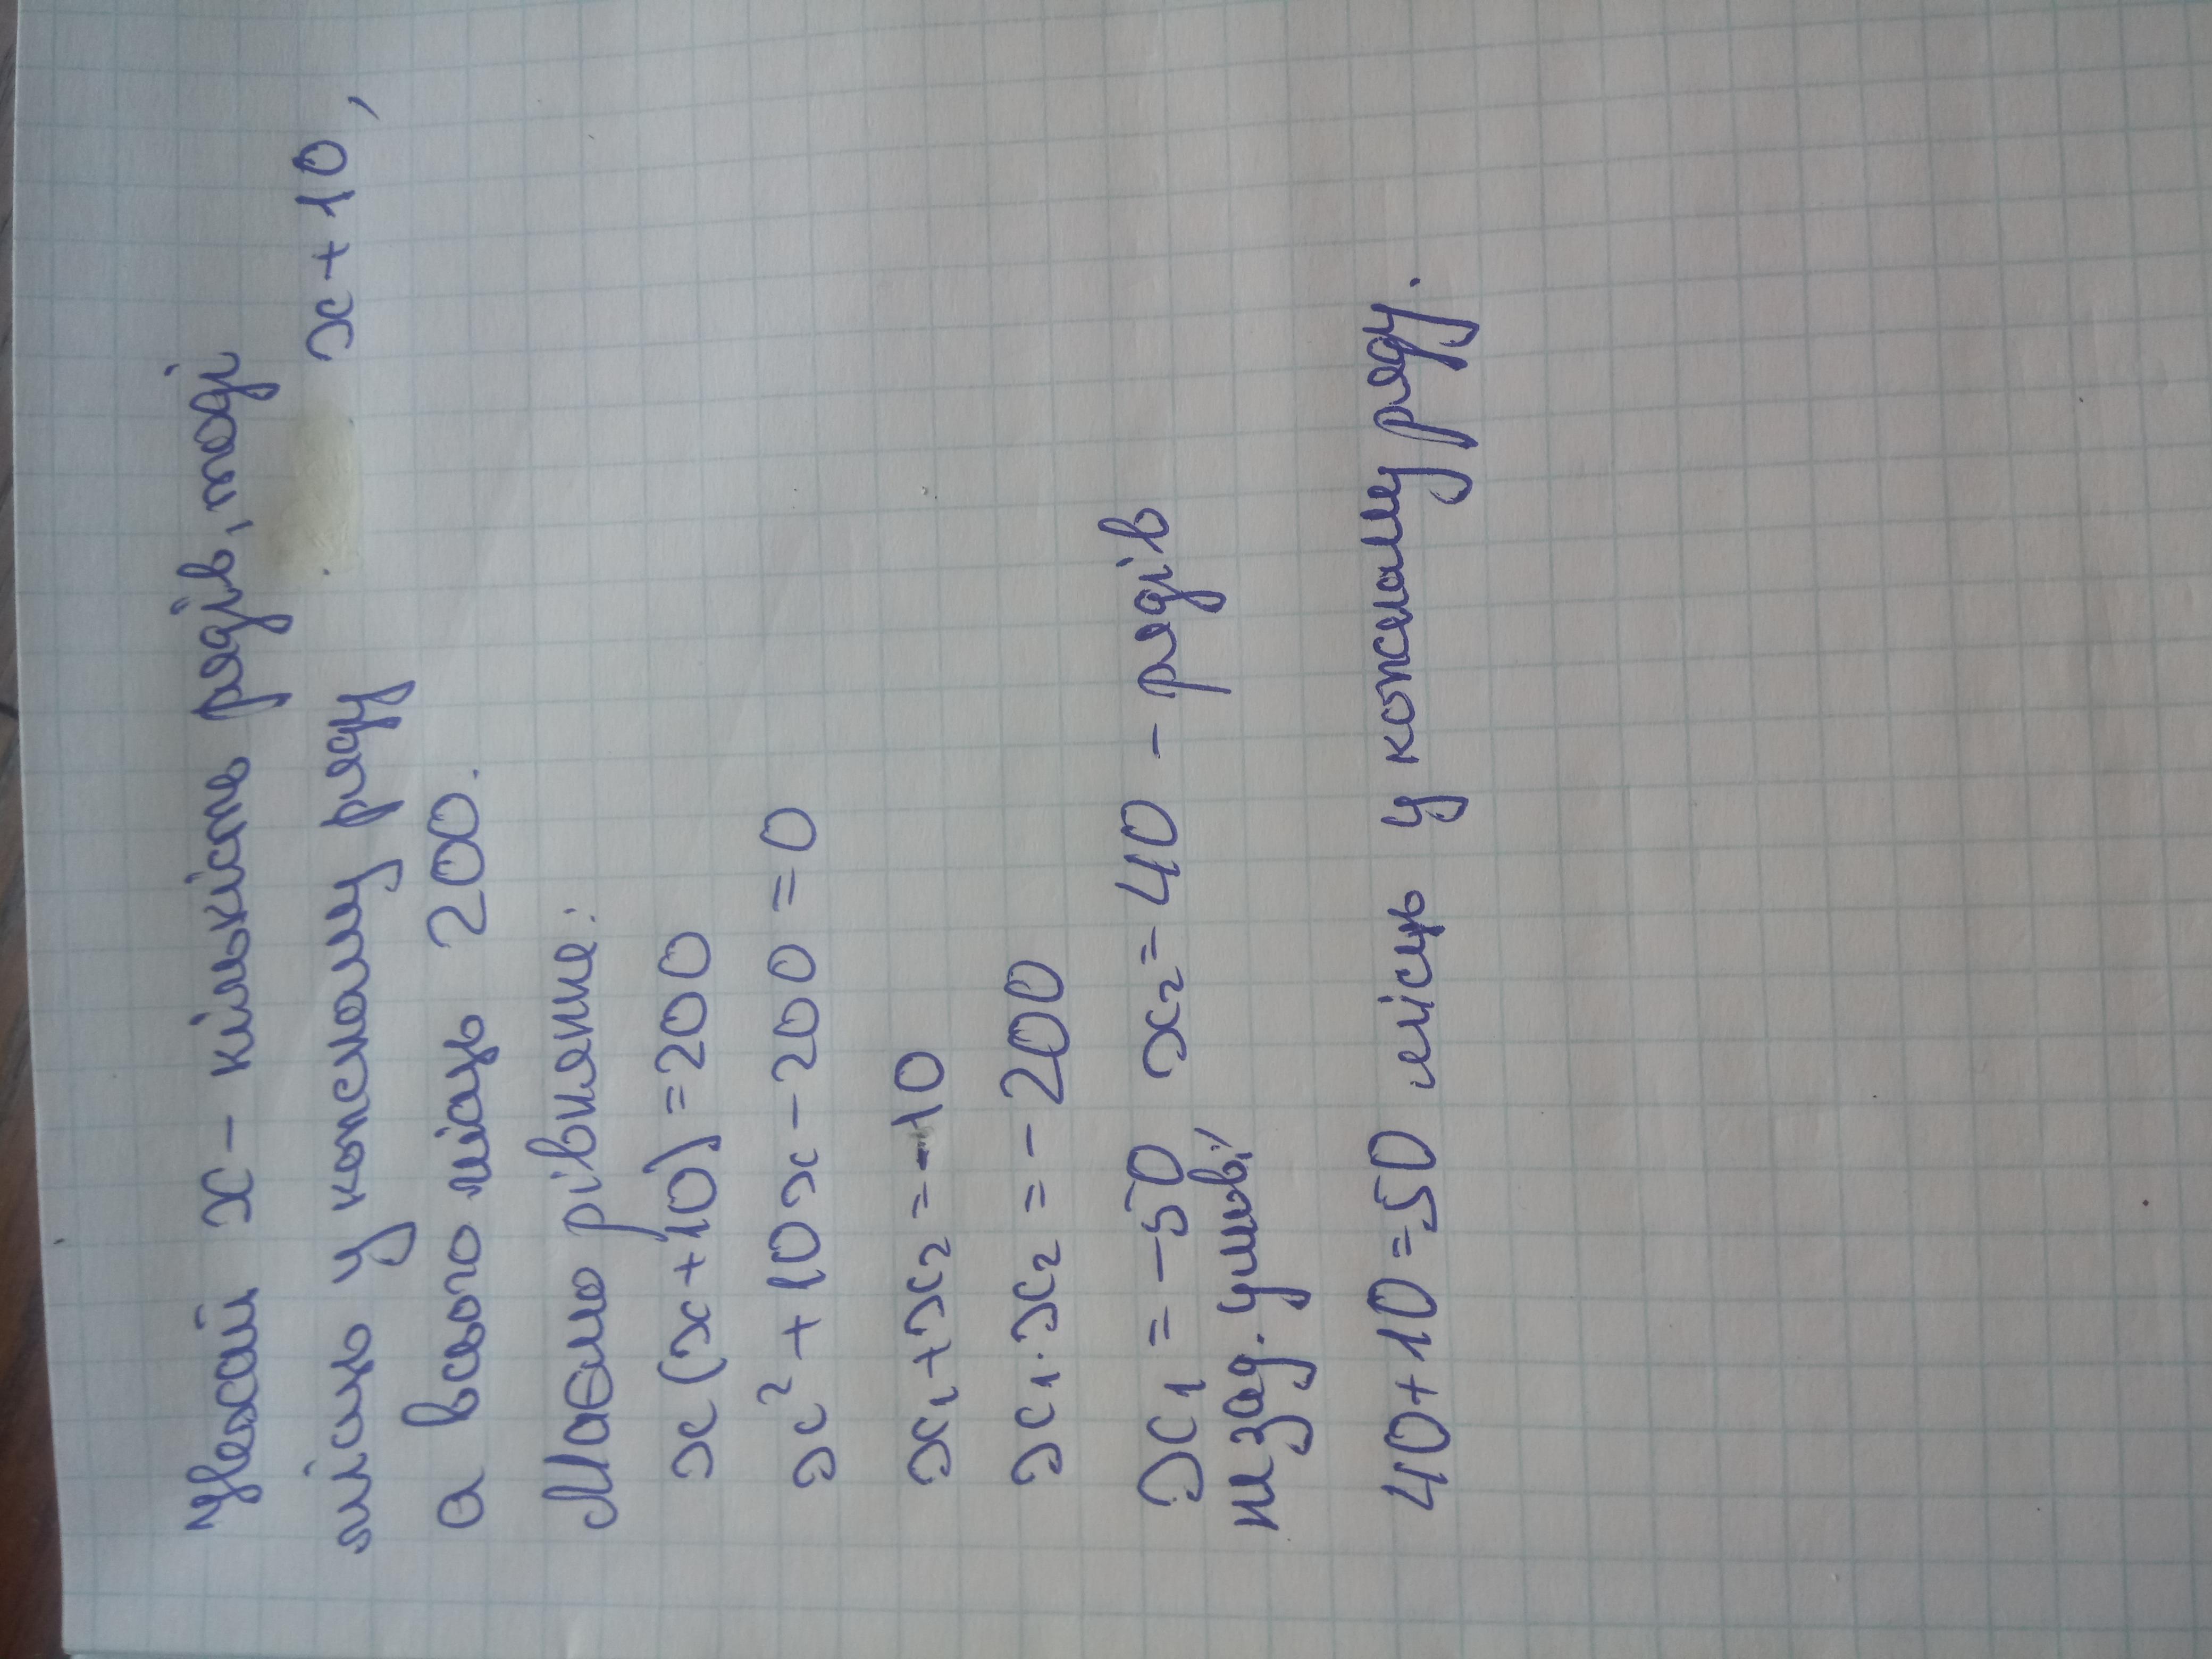 Нехай x - кількість рядів, тоді
місць у кожному ряду x + 10,
а всього місць 200.
Маємо рівняння:
x (x + 10) = 200
x² + 10x - 200 = 0
x₁ + x₂ = -10
x₁ · x₂ = - 200
x₁ = -50 x₂ = 40 - рядів
не зад. умові
40 + 10 = 50 місць у кожному ряду.